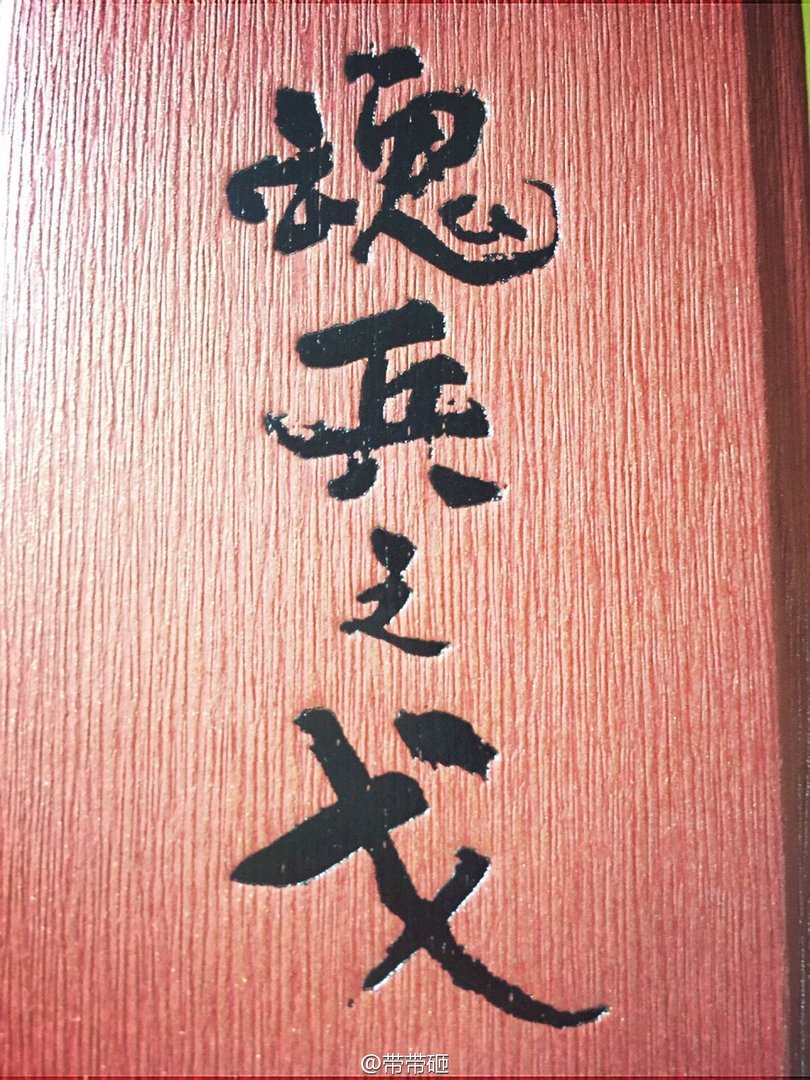 魂兵之戈
@带带砸